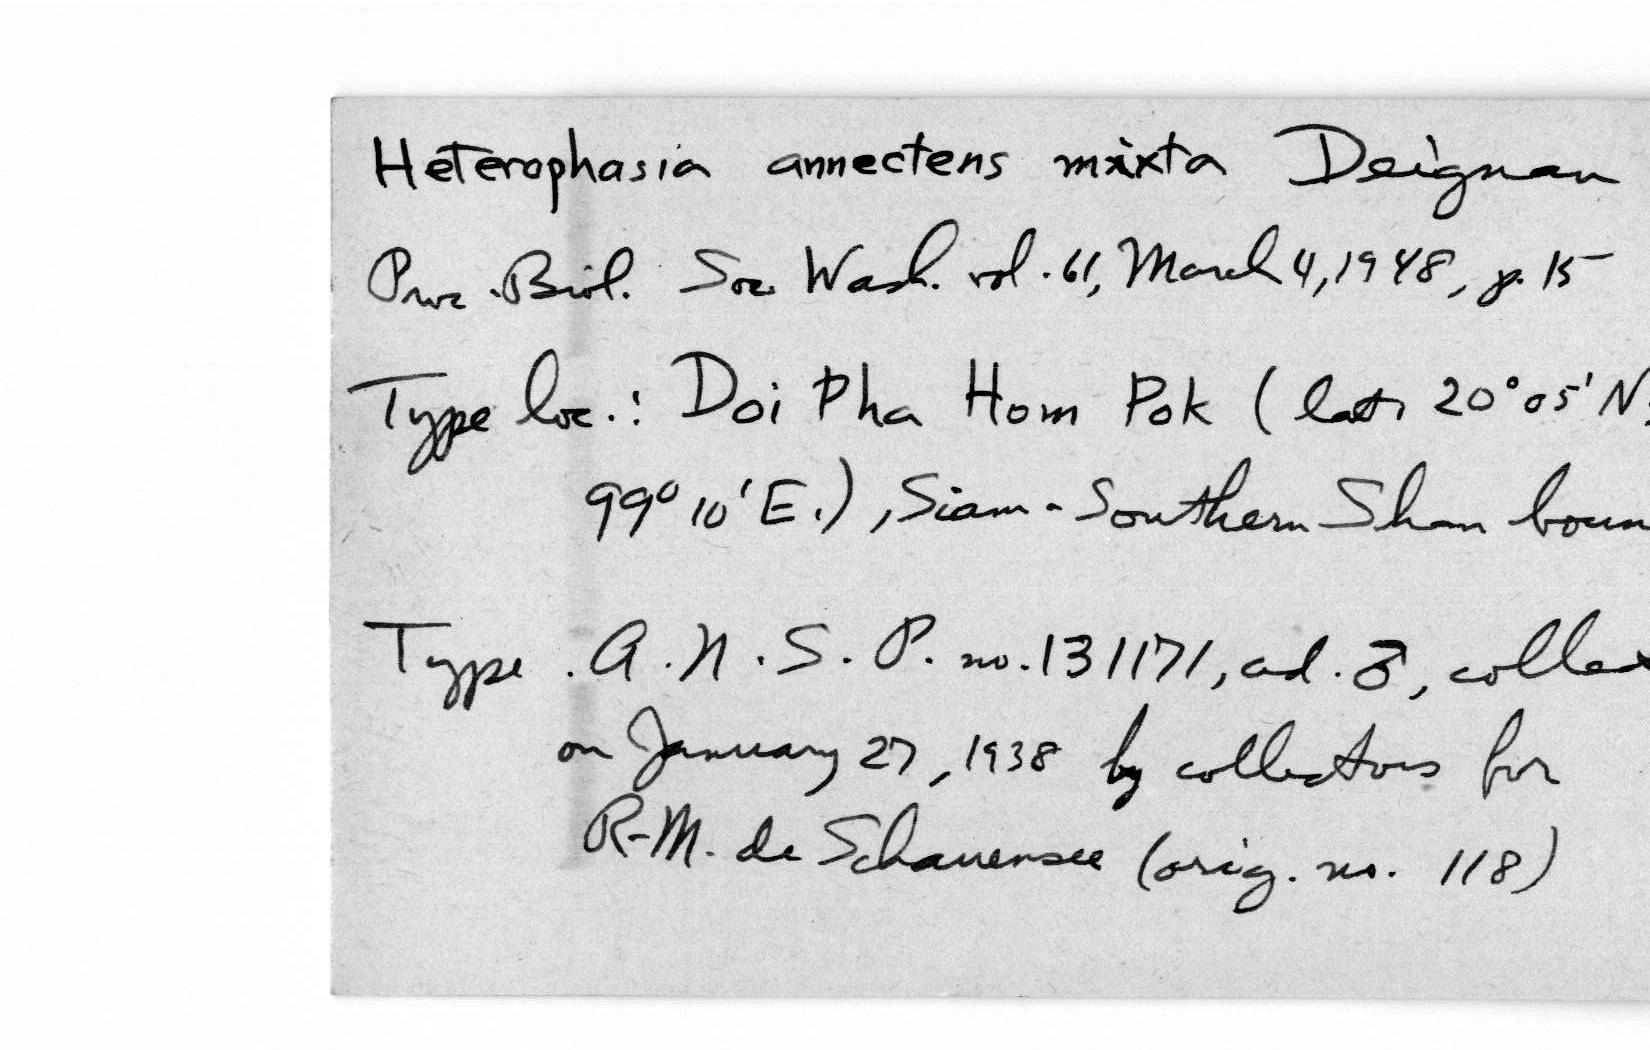 Heterophasia annectens mixta Deignan
Proc. Biol. Soc. Wash. vol. 61, March 4, 1948, p. 15
Type loc.: Doi Pha Hom Pok (lat. 20°05'N.
99°10'E.), Siam-Southern Shan boun
Type . A.N.S.P. no. 131171, ad. ♂, collect
on January 27, 1938 by collectors for
R-M. de Schauensee (orig. no. 118)